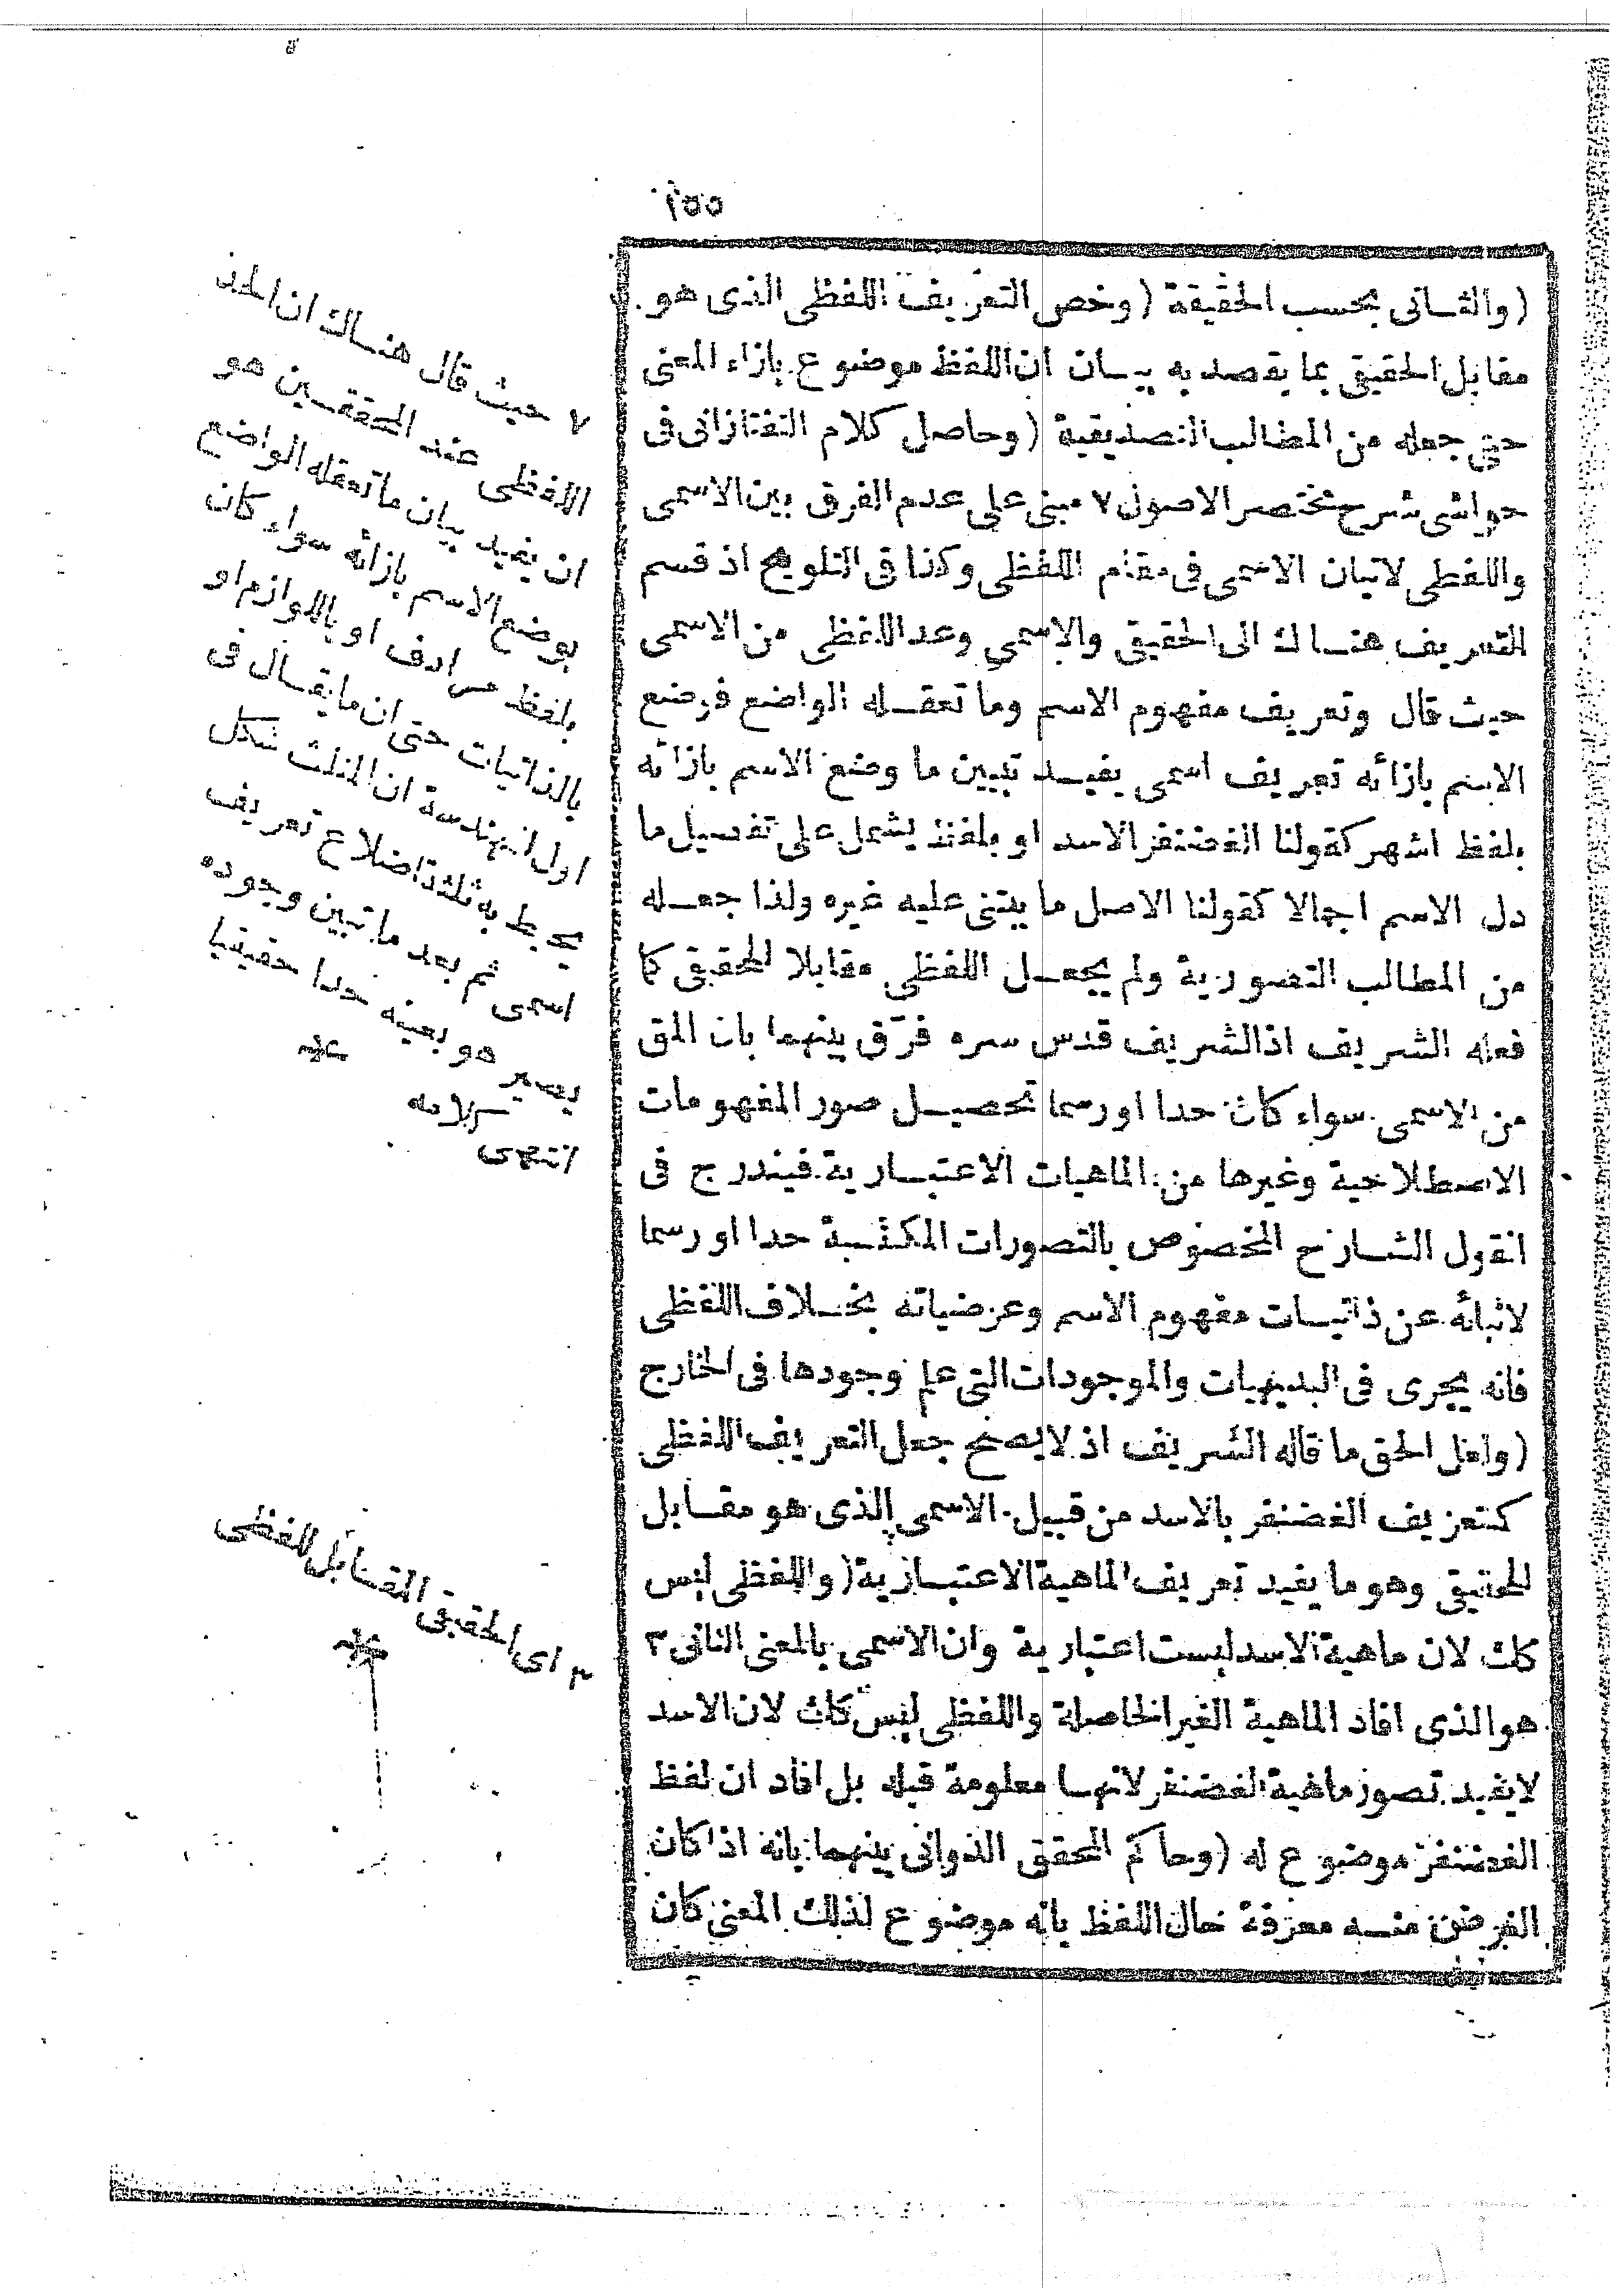 ١٥٥
(والثانى بحسب الحقيقة (وخص التعريف اللفظى الذى هو
مقابل الحقيقى بما يقصد به بيان ان اللفظ موضوع بازاء المعنى
حتى جعله من المطالب التصديقية (وحاصل كلام التفتازانى فى
حواشى شرح مختصر الاصول ٧ مبنى على عدم الفرق بين الاسمى
واللفظى لاتيان الاسمى فى مقام اللفظى وكذا فى التلويح اذ قسم
التعريف هناك الى الحقيقى والاسمى وعد اللفظى من الاسمى
حيث قال وتعريف مفهوم الاسم وما تعقله الواضع فوضع
الاسم بازائه تعريف اسمى يفيد تبيين ما وضع الاسم بازائه
بلفظ اشهر كقولنا الغضنفر الاسد او بلفظ يشمل على تفصيل ما
دل الاسم اجمالا كقولنا الاصل ما يبتنى عليه غيره ولذا جعله
من المطالب التصورية ولم يجعل اللفظى مقابلا للحقيقى كما
فعله الشريف اذ الشريف قدس سره فرّق بينهما بان المق
من الاسمى سواء كان حدا او رسما تحصيل صور المفهومات
الاصطلاحية وغيرها من الماهيات الاعتبارية فيندرج فى
القول الشارح المخصوص بالتصورات المكتسبة حدا او رسما
لانبائه عن ذاتيات مفهوم الاسم وعرضياته بخلاف اللفظى
فانه يجرى فى البديهيات والموجودات التى علم وجودها فى الخارج
(ولعل الحق ما قاله الشريف اذ لا يصح جعل التعريف اللفظى
كتعريف الغضنفر بالاسد من قبيل الاسمى الذى هو مقابل
الحقيقى وهو ما يفيد تعريف الماهية الاعتبارية (واللفظى ليس
كك لان ماهية الاسد ليست اعتبارية وان الاسمى بالمعنى الثانى ٣
هو الذى افاد الماهية الغير الحاصلة واللفظى ليس كك لان الاسد
لا يفيد تصور ماهية الغضنفر لانها معلومة قبله بل افاد ان لفظ
الغضنفر موضوع له (وحاكم المحقق الدوانى بينهما بانه اذا كان
الغرض منه معرفة حال اللفظ بانه موضوع لذلك المعنى كان
٧ حيث قال هناك ان الحد
اللفظى عند المحققين هو
ان يفيد بيان ما تعقله الواضع
بوضع الاسم بازائه سواء كان
بلفظ مرادف او باللوازم او
بالذاتيات حتى ان ما يقال فى
اول الهندسة ان المثلث شكل
يحيط به ثلثة اضلاع تعريف
اسمى ثم بعد ما تبين وجوده
يصير هو بعينه حدا حقيقيا
انتهى كلامه
٣ اى الحقيقى المقابل للفظى